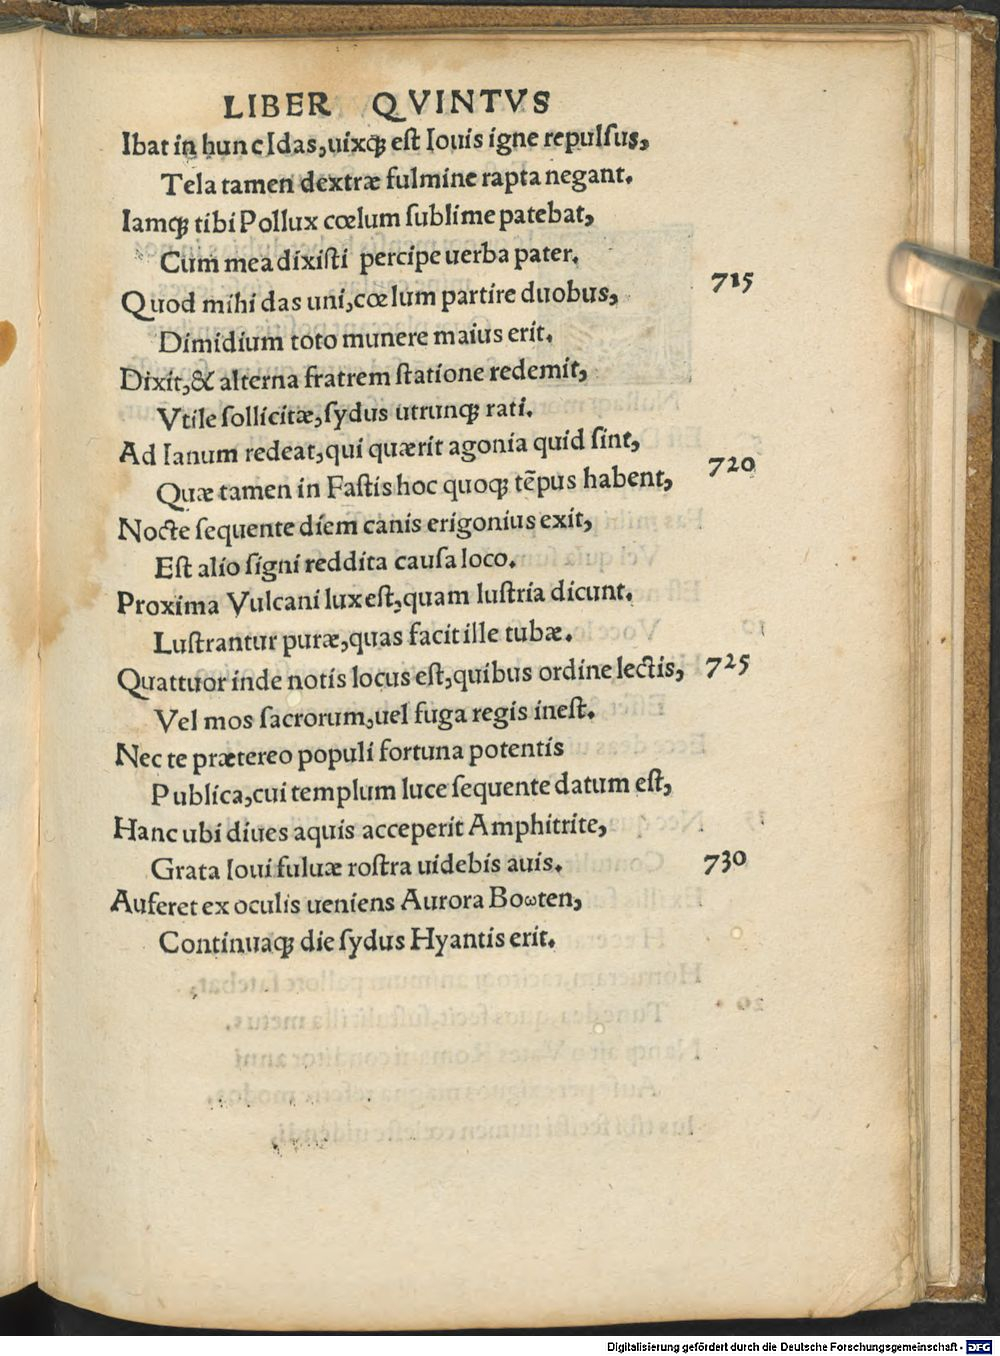 LIBER QVINTVS
Ibat in hunc Idas,uixq́ꝫ eſt Iouis igne repulſus,
Tela tamen dextræ fulmine rapta negant.
Iamqꝫ tibi Pollux cœlum ſublime patebat,
Cum mea dixiſti percipe uerba pater.
Quod mihi das uni,cœlum partire duobus, 715
Dimidium toto munere maius erit.
Dixit,& alterna fratrem ſtatione redemit,
Vtile ſollicitæ,ſydus utrunqꝫ rati.
Ad Ianum redeat,qui quærit agonia quid ſint,
Quæ tamen in Faſtis hoc quoqꝫ tẽpus habent, 720
Nocte ſequente diem canis erigonius exit,
Eſt alio ſigni reddita cauſa loco.
Proxima Vulcani lux eſt,quam luſtria dicunt.
Luſtrantur puræ,quas facit ille tubæ.
Quattuor inde notis locus eſt,quibus ordine lectis, 725
Vel mos ſacrorum,uel fuga regis ineſt.
Nec te prætereo populi fortuna potentis
Publica,cui templum luce ſequente datum eſt,
Hanc ubi diues aquis acceperit Amphitrite,
Grata Ioui fuluæ roſtra uidebis auis. 730
Auferet ex oculis ueniens Aurora Boωten,
Continuaqꝫ die ſydus Hyantis erit.
Digitalisierung gefördert durch die Deutsche Forschungsgemeinschaft - DFG